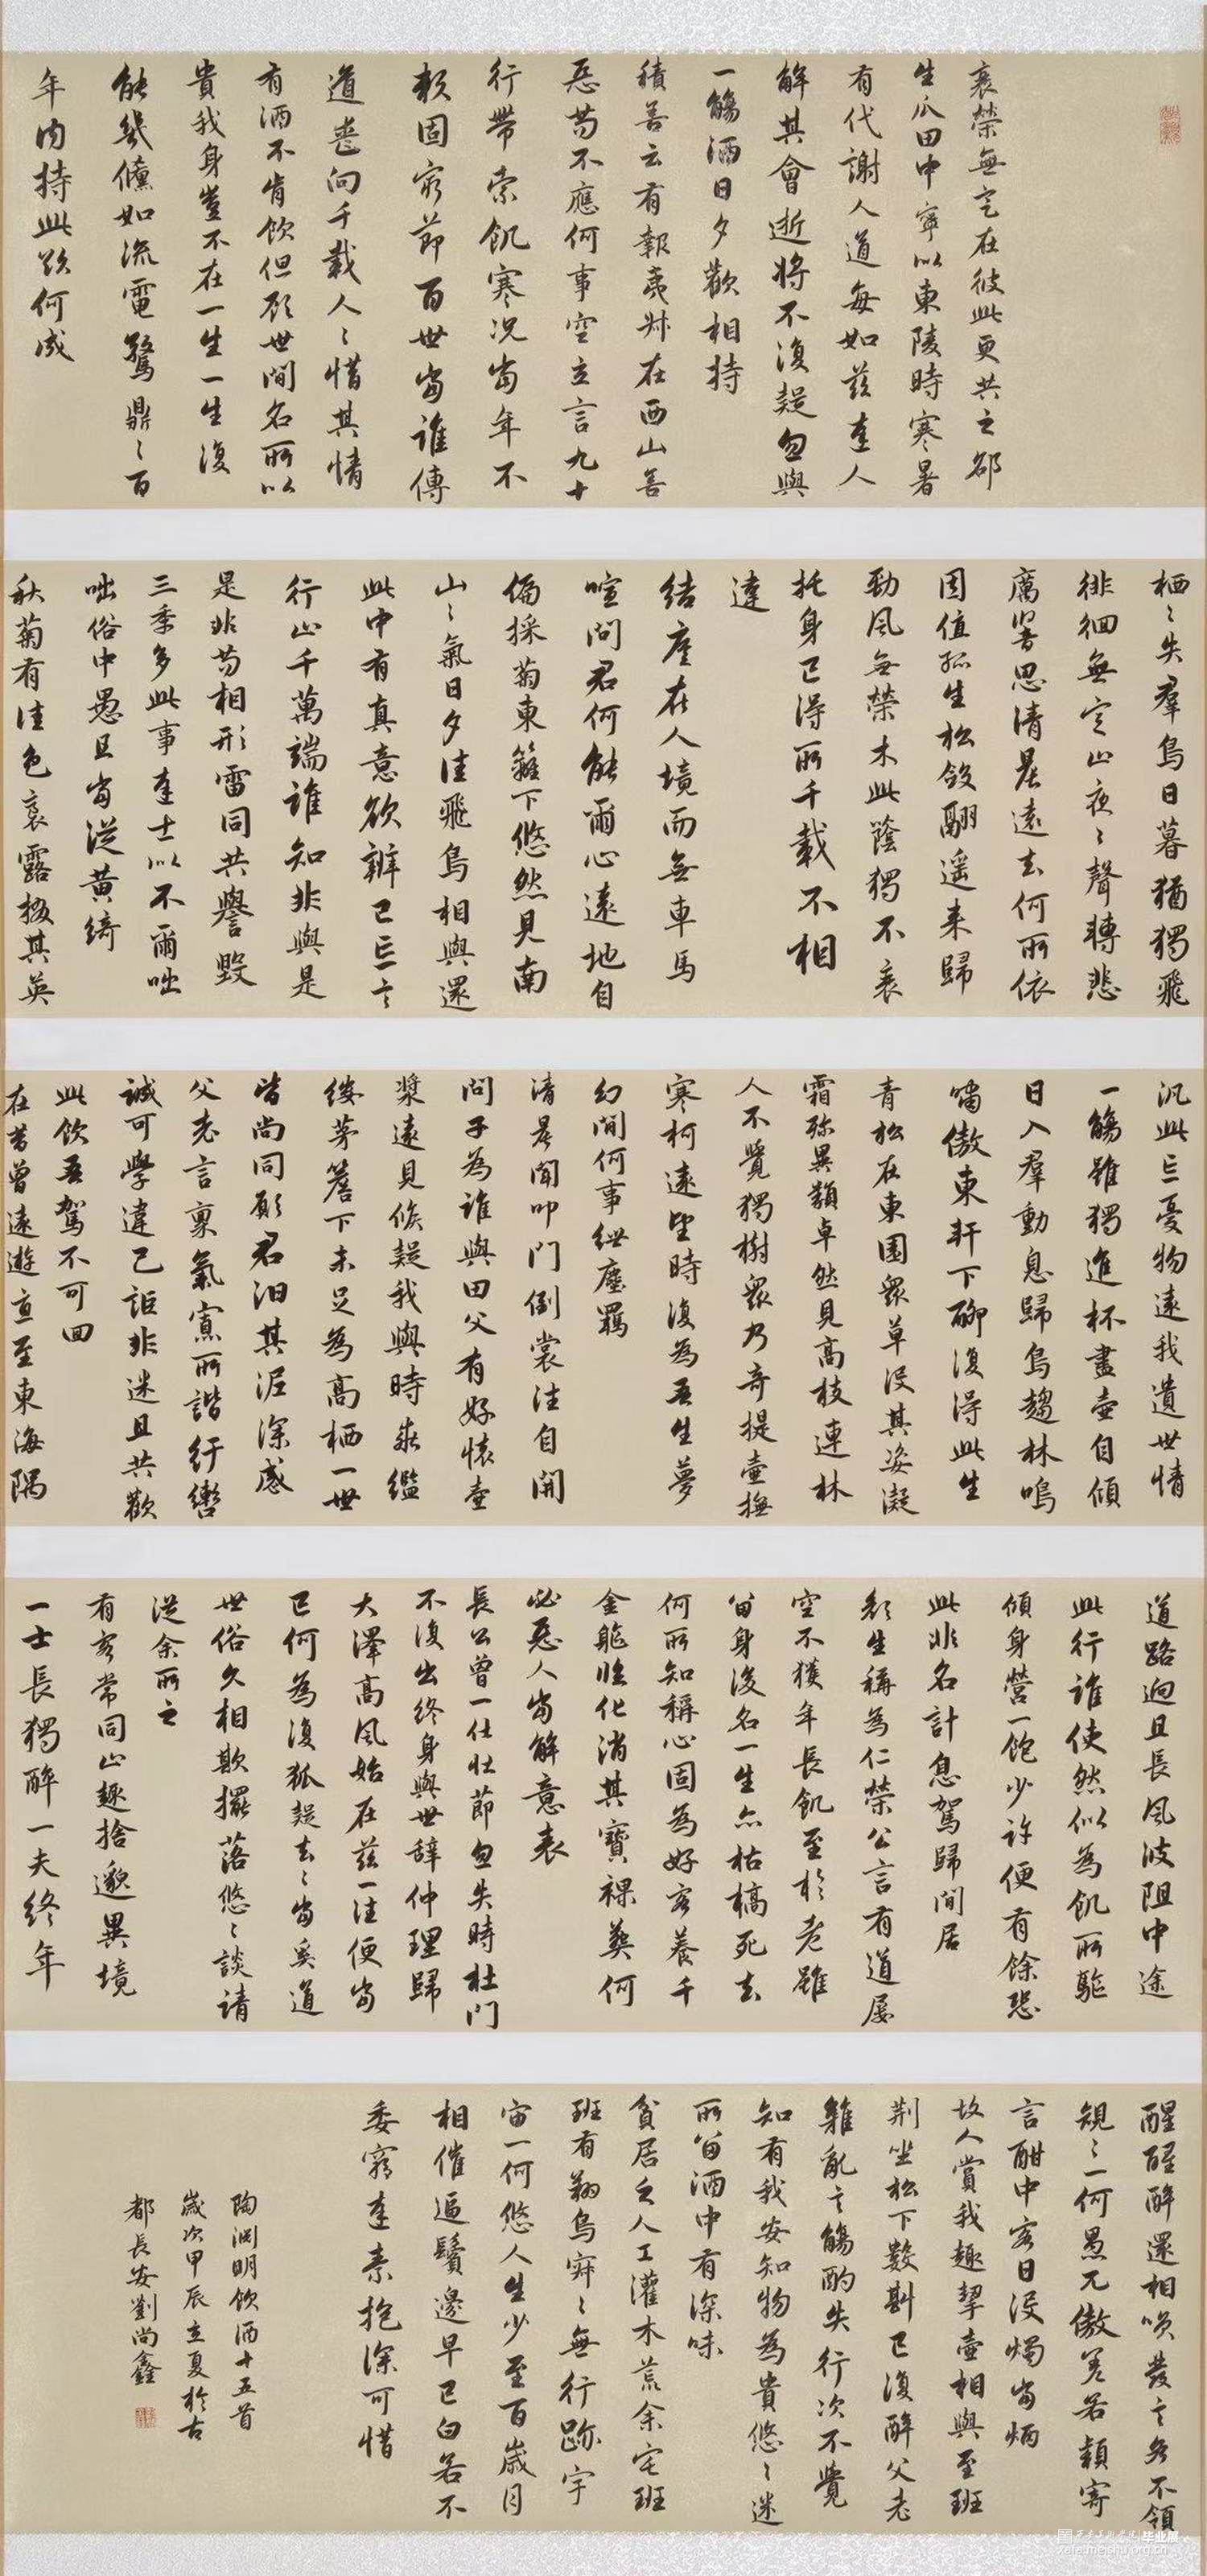 衰榮無定在彼此更共之邵
生瓜田中寧似東陵時寒暑
有代謝人道每如茲達人
解其會逝將不復疑忽與
一觴酒日夕歡相持
積善云有報夷叔在西山善
惡苟不應何事空立言九十
行帶索飢寒況當年不
賴固窮節百世當誰傳
道喪向千載人〻惜其情
有酒不肯飲但顧世間名所以
貴我身豈不在一生一生復
能幾倏如流電驚鼎〻百
年內持此欲何成
栖〻失羣鳥日暮猶獨飛
徘徊無定止夜〻聲轉悲
厲響思清晨遠去何所依
因值孤生松斂翮遥来歸
勁風無榮木此蔭獨不衰
托身已得所千載不相
違
結廬在人境而無車馬
喧問君何能爾心遠地自
偏採菊東籬下悠然見南
山〻氣日夕佳飛鳥相與還
此中有真意欲辨已忘言
行止千萬端誰知非與是
是非苟相形雷同共譽毀
三季多此事達士似不爾咄
咄俗中愚且當從黄綺
秋菊有佳色裛露掇其英
汎此忘憂物遠我遺世情
一觴雖獨進杯盡壺自傾
日入羣動息歸鳥趨林鳴
嘯傲東軒下聊復得此生
青松在東園衆草没其姿凝
霜殄異類卓然見高枝連林
人不覺獨樹衆乃奇提壺撫
寒柯遠望時復為吾生夢
幻間何事紲塵羈
清晨聞叩門倒裳往自開
問子為誰與田父有好懷壺
漿遠見候疑我與時乖繿
縷茅簷下未足為高栖一世
皆尚同願君汩其泥深感
父老言稟氣寡所諧紆轡
誠可學違己詎非迷且共歡
此飲吾駕不可回
在昔曾遠遊直至東海隅
道路迥且長風波阻中途
此行誰使然似為飢所驅
傾身營一飽少許便有餘恐
此非名計息駕歸閒居
顏生稱為仁榮公言有道屢
空不獲年長飢至於老雖
留身後名一生亦枯槁死去
何所知稱心固為好客養千
金軀臨化消其寶裸葬何
必惡人當解意表
長公曾一仕壯節忽失時杜門
不復出終身與世辭仲理歸
大澤高風始在茲一往便當
已何為復狐疑去〻當奚道
世俗久相欺擺落悠〻談請
從余所之
有客常同止趣捨邈異境
一士長獨醉一夫終年
醒醒醉還相唉發言各不領
規〻一何愚兀傲差若穎寄
言酣中客日没燭當炳
故人賞我趣挈壺相與至班
荆坐松下數斟已復醉父老
雜亂言觴酌失行次不覺
知有我安知物為貴悠〻迷
所留酒中有深味
貧居乏人工灌木荒余宅班
班有翔鳥寂〻無行跡宇
宙一何悠人生少至百歲月
相催逼鬢邊早已白若不
委窮達素抱深可惜
陶淵明飲酒十五首
歲次甲辰立夏於古
都長安劉尚鑫
毕业展
xafa.meishu.org.cn